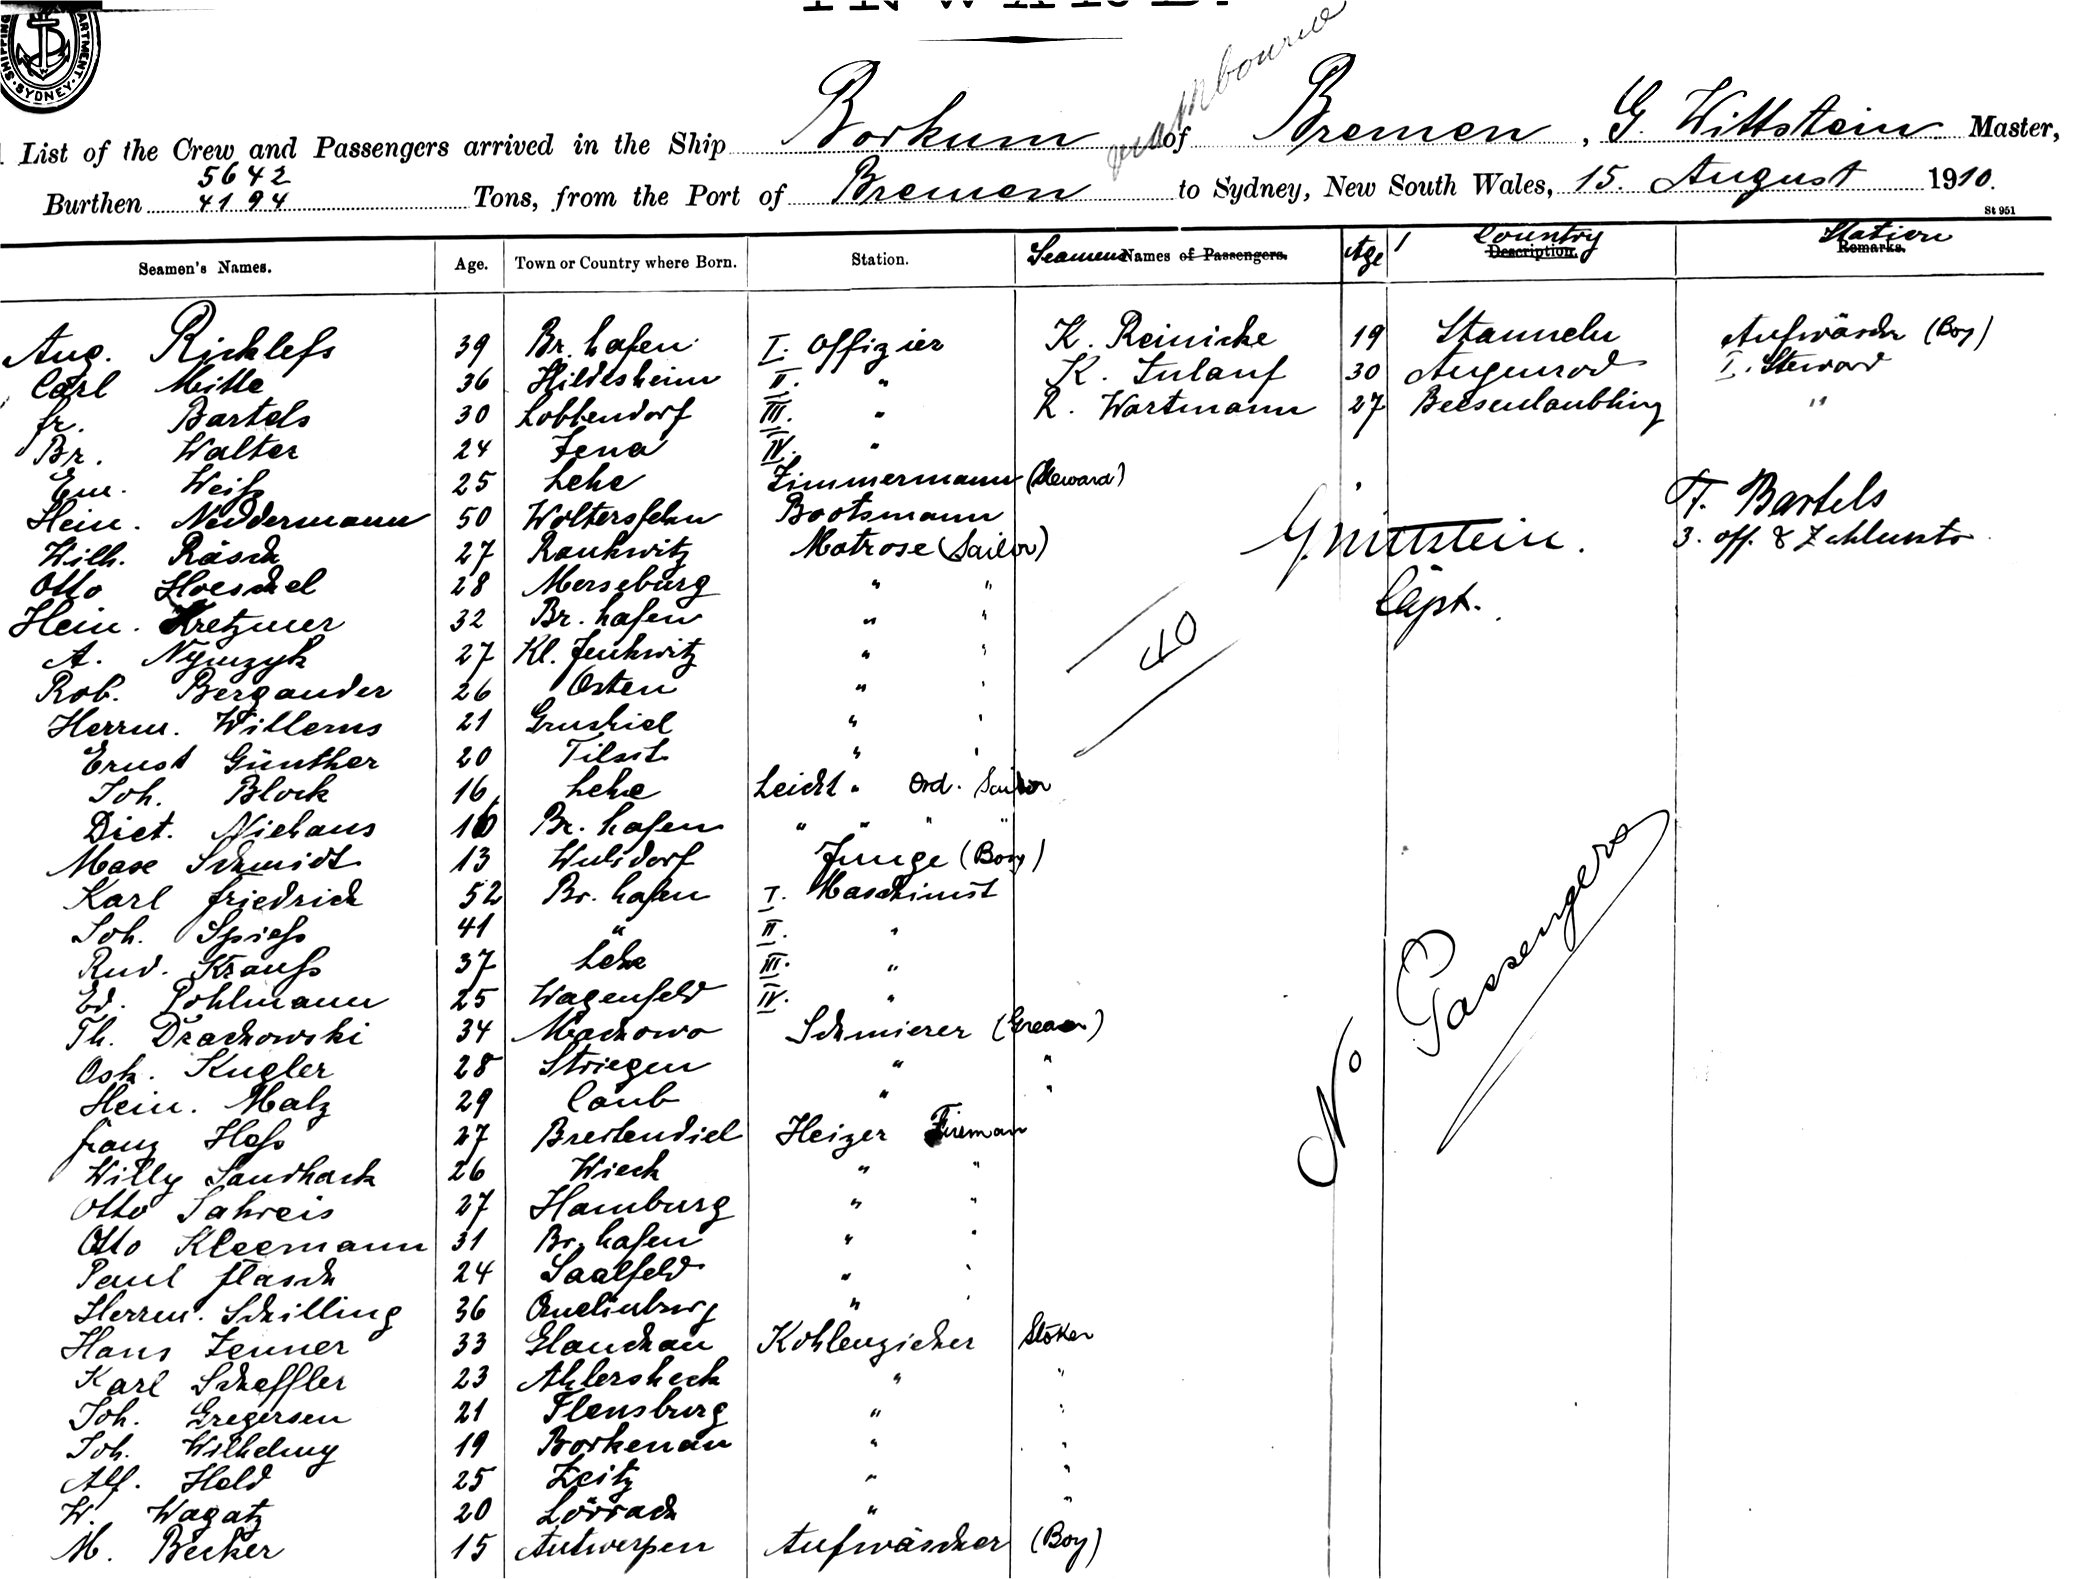 SHIPPING DEPARTMENT. SYDNEY.
INWARD.
via Melbourne
List of the Crew and Passengers arrived in the Ship Borkum of Bremen, G. Wittstein Master,
5642
Burthen 4194 Tons, from the Port of Bremen to Sydney, New South Wales, 15. August 1910.
St 951
Seamen's Names. Age. Town or Country where Born. Station. Seamens Names of Passengers. Age Country Description. Station Remarks.
Aug. Ricklefs 39 Br. hafen I. Offizier K. Reinicke 19 Aufwäscher (Boy)
Carl Mitte 36 Hildesheim II. " K. Zulauf 30 Angenrod I. Steward
Fr. Bartels 30 Lobbendorf III. " R. Wortmann 27 Beesenlaubling "
Br. Walter 24 Jena IV. "
Em. Weiß 25 Lehe Zimmermann (Steward)
Hein. Neddermann 50 Woltersfehn Bootsmann
Wilh. Räsch 27 Rankwitz Matrose (Sailor)
Otto Hoeschel 28 Merseburg " "
Hein. Kretzmer 32 Br. hafen " "
A. Nymzyk 27 Kl. Jenkwitz " "
Rob. Bergander 26 Osten " "
Herrm. Willems 21 " "
Ernst Günther 20 Tilsit " "
Joh. Block 16 Lehe Leicht " Ord. Sailor
Diet. Niehaus 16 Br. hafen " " " "
Max Schmidt 13 Wulsdorf Junge (Boy)
Karl Friedrich 52 Br. hafen I. Maschinist
Joh. Spieß 41 " II. "
Rud. Krauß 37 Lehe III. "
Ed. Pohlmann 25 Wagenfeld IV. "
Th. Drachowski 34 Machowo Schmierer (Greaser)
Osk. Kugler 28 Striegen " "
Hein. Malz 29 Caub " "
Franz Heß 27 Breitendiel Heizer Fireman
Willy Sandhack 26 Wieck " "
Otto Sahreis 27 Hamburg " "
Otto Kleemann 31 Br. hafen " "
Paul Flasch 24 Saalfeld " "
Herrm. Schilling 36 Quedlinburg " "
Hans Zenner 33 Glauchau Kohlenzieher Stoker
Karl Scheffler 23 " "
Joh. Gregersen 21 Flensburg " "
Joh. Wilhelmy 19 Borkenau " "
Alf. Held 25 Zeitz " "
W. Wagatz 20 Lörrach " "
M. Becker 15 Antwerpen Aufwäscher (Boy)
G. Wittstein.
Capt.
F. Bartels
3. Off. & Zahlmstr.
40
No Passengers